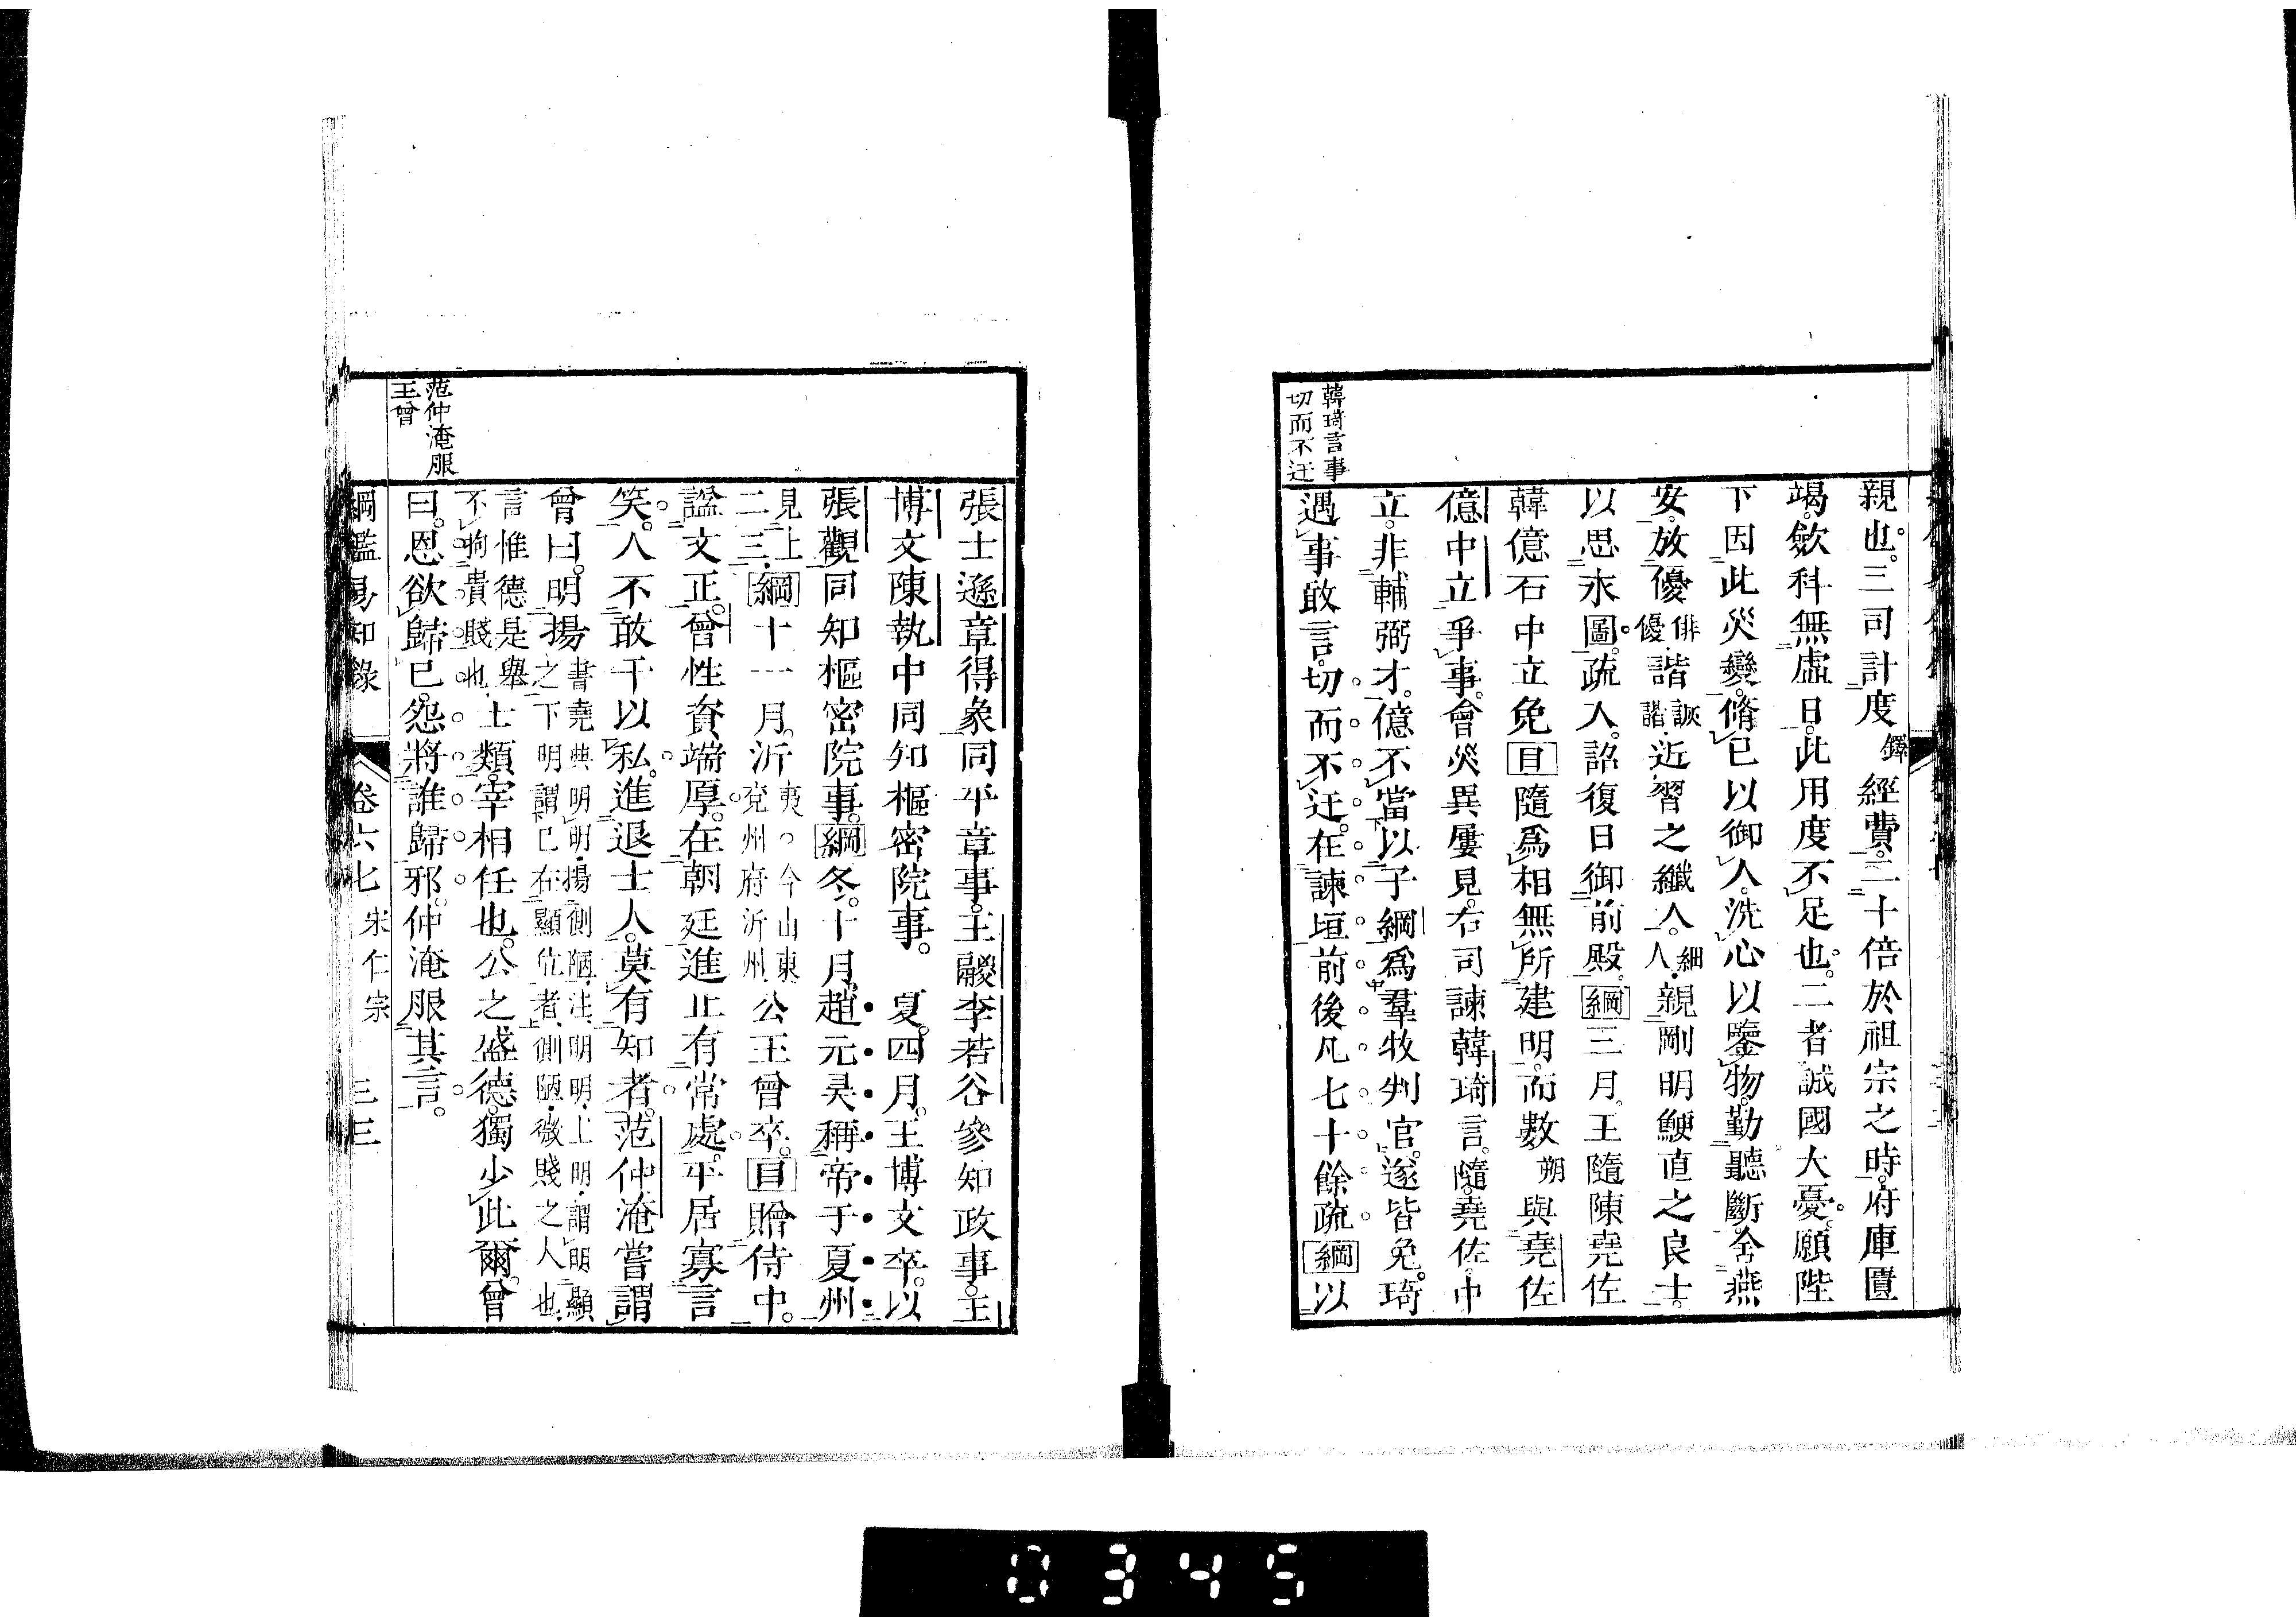 韓琦言事
切而不迂
親也。三司計度鐸經費。二十倍於祖宗之時。府庫匱
竭。斂科無虛日。此用度不足也。二者誠國大憂。願陛
下因此災變。脩己以御人。洗心以鑒物。勤聽斷。舍燕
安。放優俳優。諧詼諧。近習之纖人。細人。親剛明鯁直之良士。
以思永圖。疏入。詔復日御前殿。綱三月。王隨陳堯佐
韓億石中立免目隨爲相無所建明。而數朔與堯佐
億中立爭事。會災異屢見。右司諫韓琦言。隨。堯佐。中
立。非輔弼才。億不當以子綱爲羣牧判官。遂皆免。琦
遇事敢言。切而不迂。在諫垣前後凡七十餘疏。綱以
張士遜章得象同平章事。王鬷李若谷參知政事。王
博文陳執中同知樞密院事。夏。四月。王博文卒。以
張觀同知樞密院事。綱冬。十月。趙元昊稱帝于夏州
見上二三。綱十一月。沂夷。今山東兗州府沂州。公王曾卒。目贈侍中。
諡文正。曾性資端厚。在朝廷進止有常處。平居寡言
笑。人不敢干以私。進退士人。莫有知者。范仲淹嘗謂
曾曰。明揚書堯典明明揚側陋。注。明明。上明。謂明顯之。下明。謂已在顯位者。側陋。微賤之人也。
言惟德是舉不拘貴賤也。士類。宰相任也。公之盛德。獨少此爾。曾
曰。恩欲歸己。怨將誰歸邪。仲淹服其言。
范仲淹服
王曾
綱鑑易知錄 卷六七 宋仁宗 三三
0345